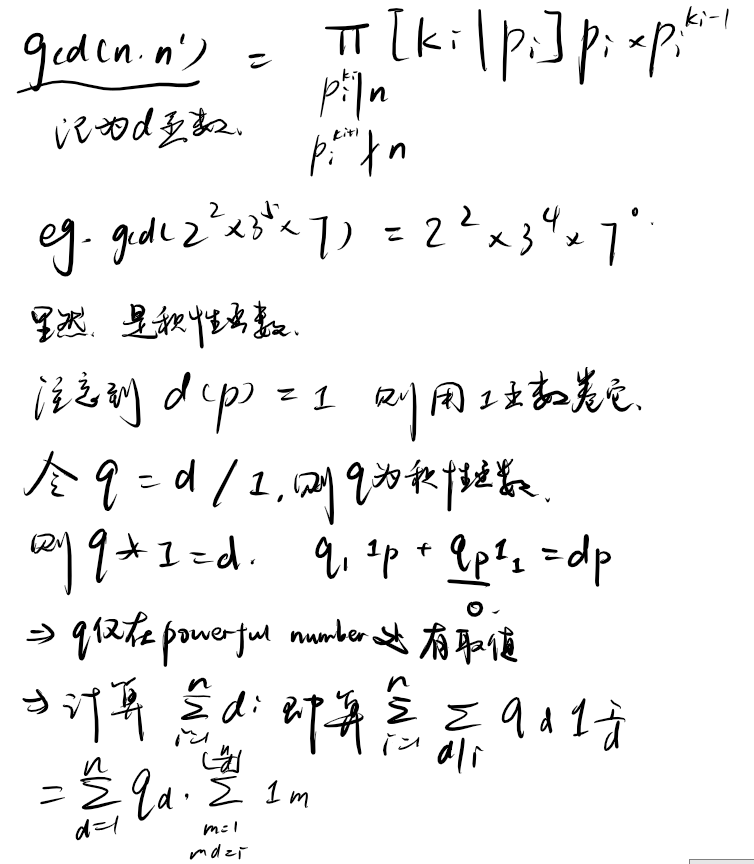 gcd(n, n') = ∏ [k_i | p_i] p_i × p_i^{k_i-1}
p_i^{k_i} | n
记为d函数. p_i^{k_i+1} ∤ n
eg. gcd(2^2 × 3^5 × 7) = 2^2 × 3^4 × 7^0.
显然. 是积性函数.
注意到 d(p) = 1 则用1函数卷它.
令 q = d / 1, 则 q为积性函数.
则 q * 1 = d. q_1 1_p + q_p 1_1 = d_p
0.
⇒ q仅在 powerful number 处 有取值
⇒ 计算 ∑_{i=1}^{n} d_i 即算 ∑_{i=1}^{n} ∑_{d|i} q_d 1_{i/d}
= ∑_{d=1}^{n} q_d · ∑_{m=1, md=i}^{⌊n/d⌋} 1_m